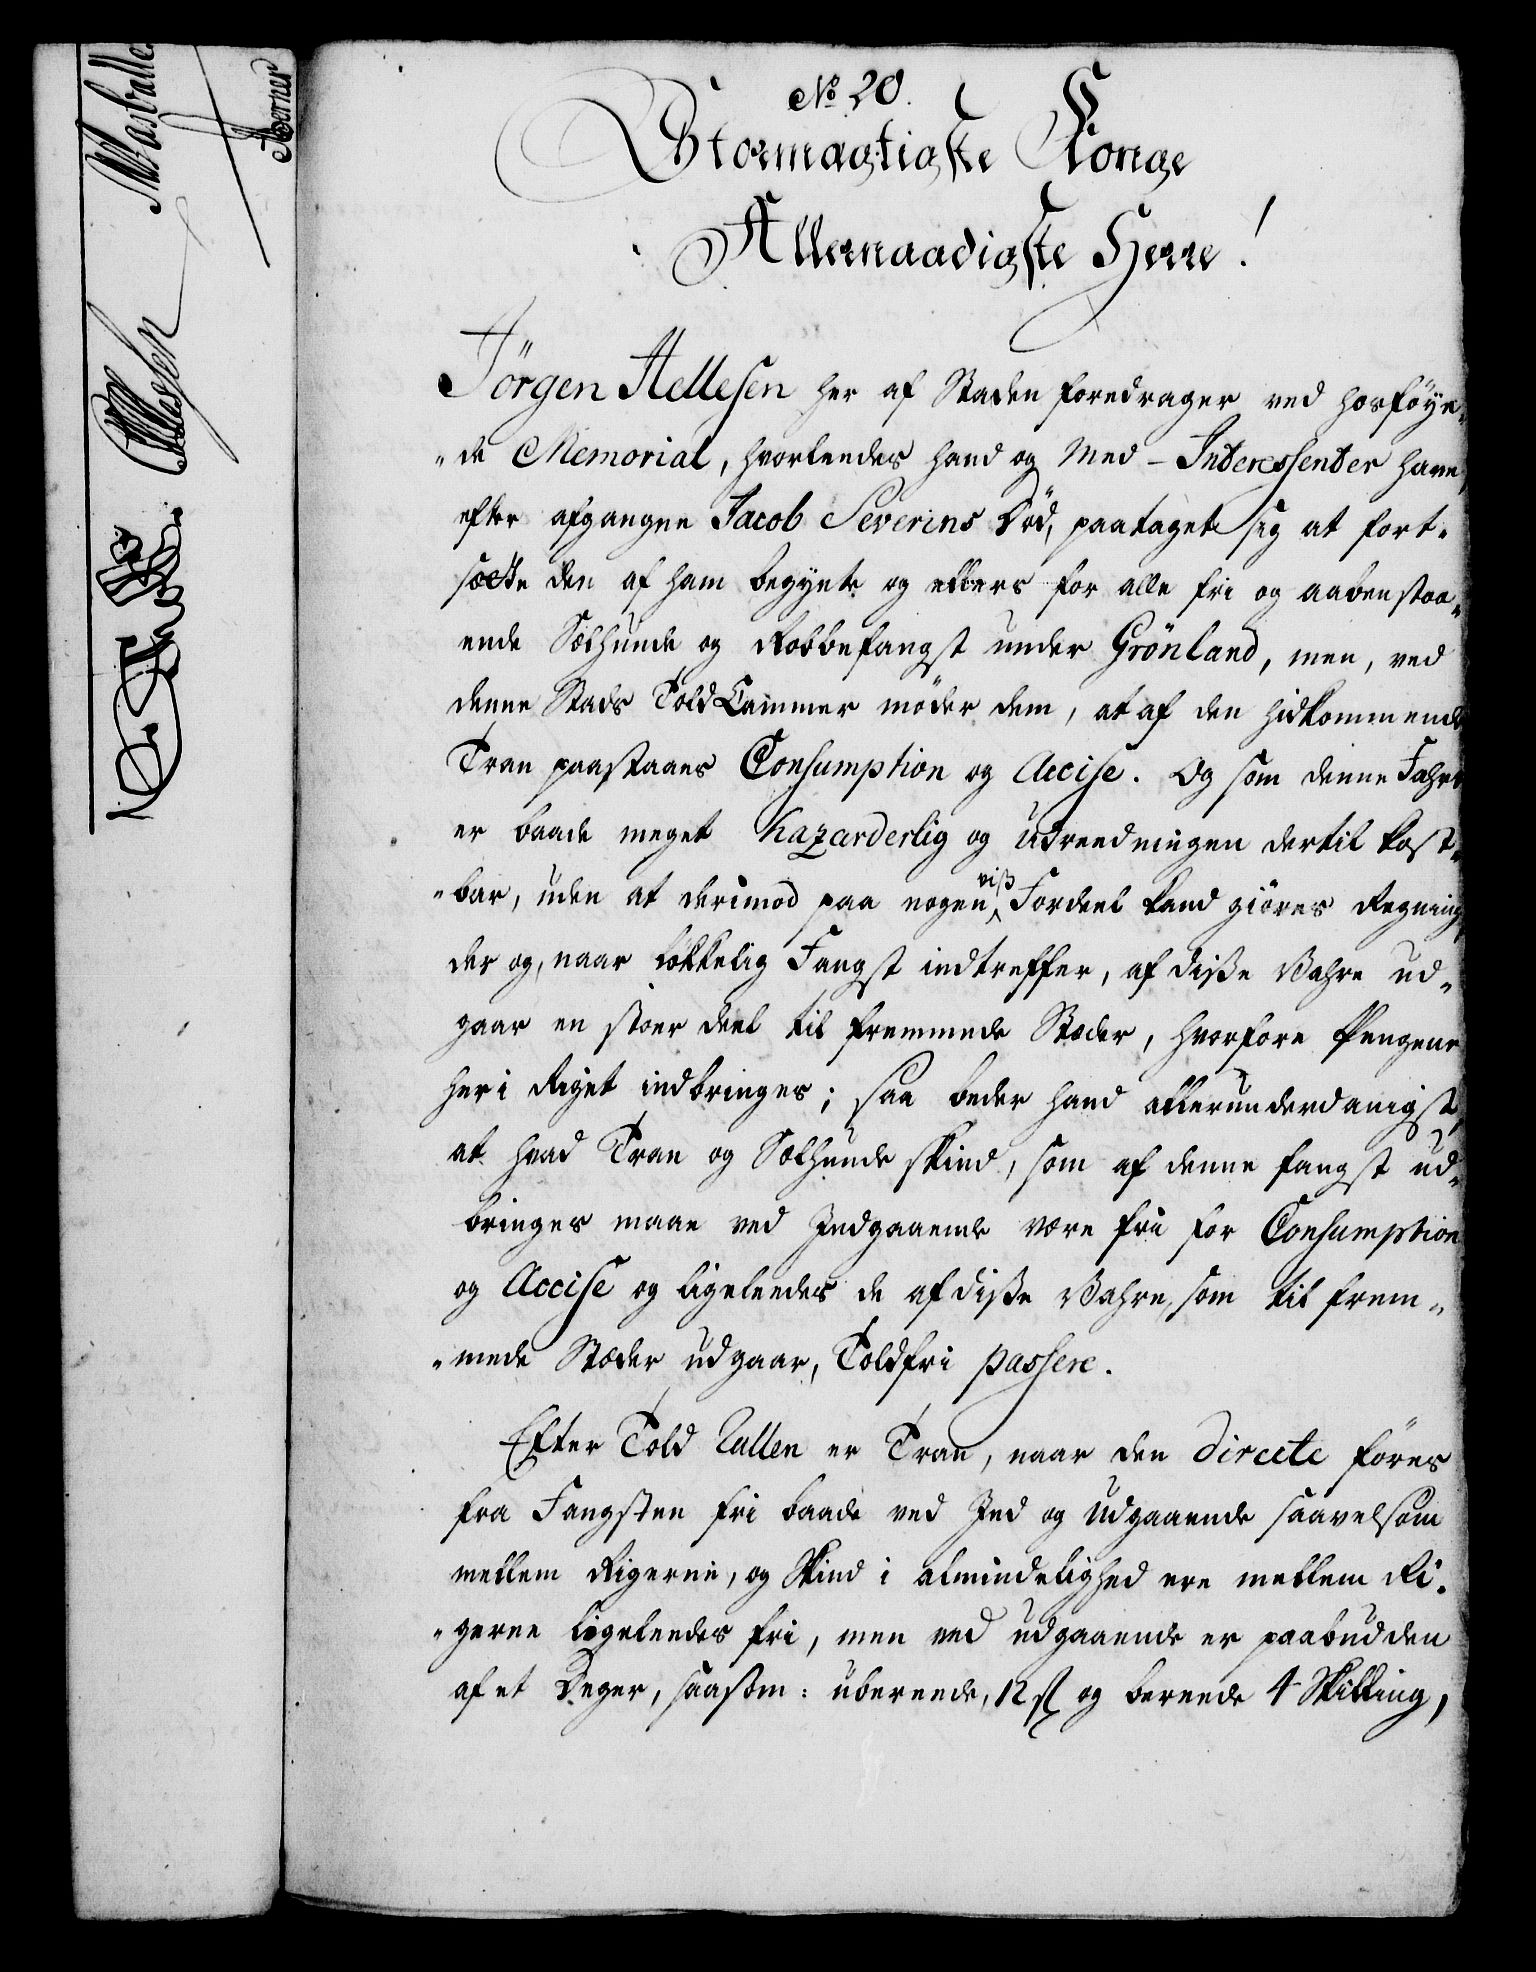 No 20.
Stormægtigste Konge
Allernaadigste Herre!
Jörgen Hellesen her af Staden foredrager ved hosföyen„
„de Memorial, hvorleedes hand og Med-Interessenter have,
efter afgangne Jacob Severins Död, paataget sig at fort„
sætte den af ham begynte og ellers for alle fri og aabenstaa„
ende Sælhunde og Robbefangst under Grönland, men, ved
denne Stads ToldCammer möder dem, at af den hidkommende
Tran paastaaes Consumption og Accise. Og som denne Fahrt
er baade meget hazarderlig og Udreedningen dertil kost„
„bar, uden at derimod paa nogen viß Fordeel kand giöres Regning,
der og, naar lökkelig Fangst indtreffer, af diße Vahre ud„
gaar en stoer deel til fremmede Stæder, hvorfore Pengene
her i Riget indbringes; saa beder hand allerunderdanigst,
at hvad Tran og Sælhunde skind, som af denne fangst ud„
bringes maae ved Indgaaende være fri for Consumption
og Accise og ligeleedes de af diße Vahre, som til frem„
„mede Stæder udgaar, Toldfri passere.
Efter Told Rullen er Tran, naar den directe föres
fra Fangsten fri baade ved Ind og Udgaaende saavelsom
mellem Rigerne, og Skind i almindelighed ere mellem Ri„
„gerne ligeleedes fri, men ved udgaaende er paabudden
af et Deger, saasom: ubereede, 12 sk og bereede 4 Skilling,